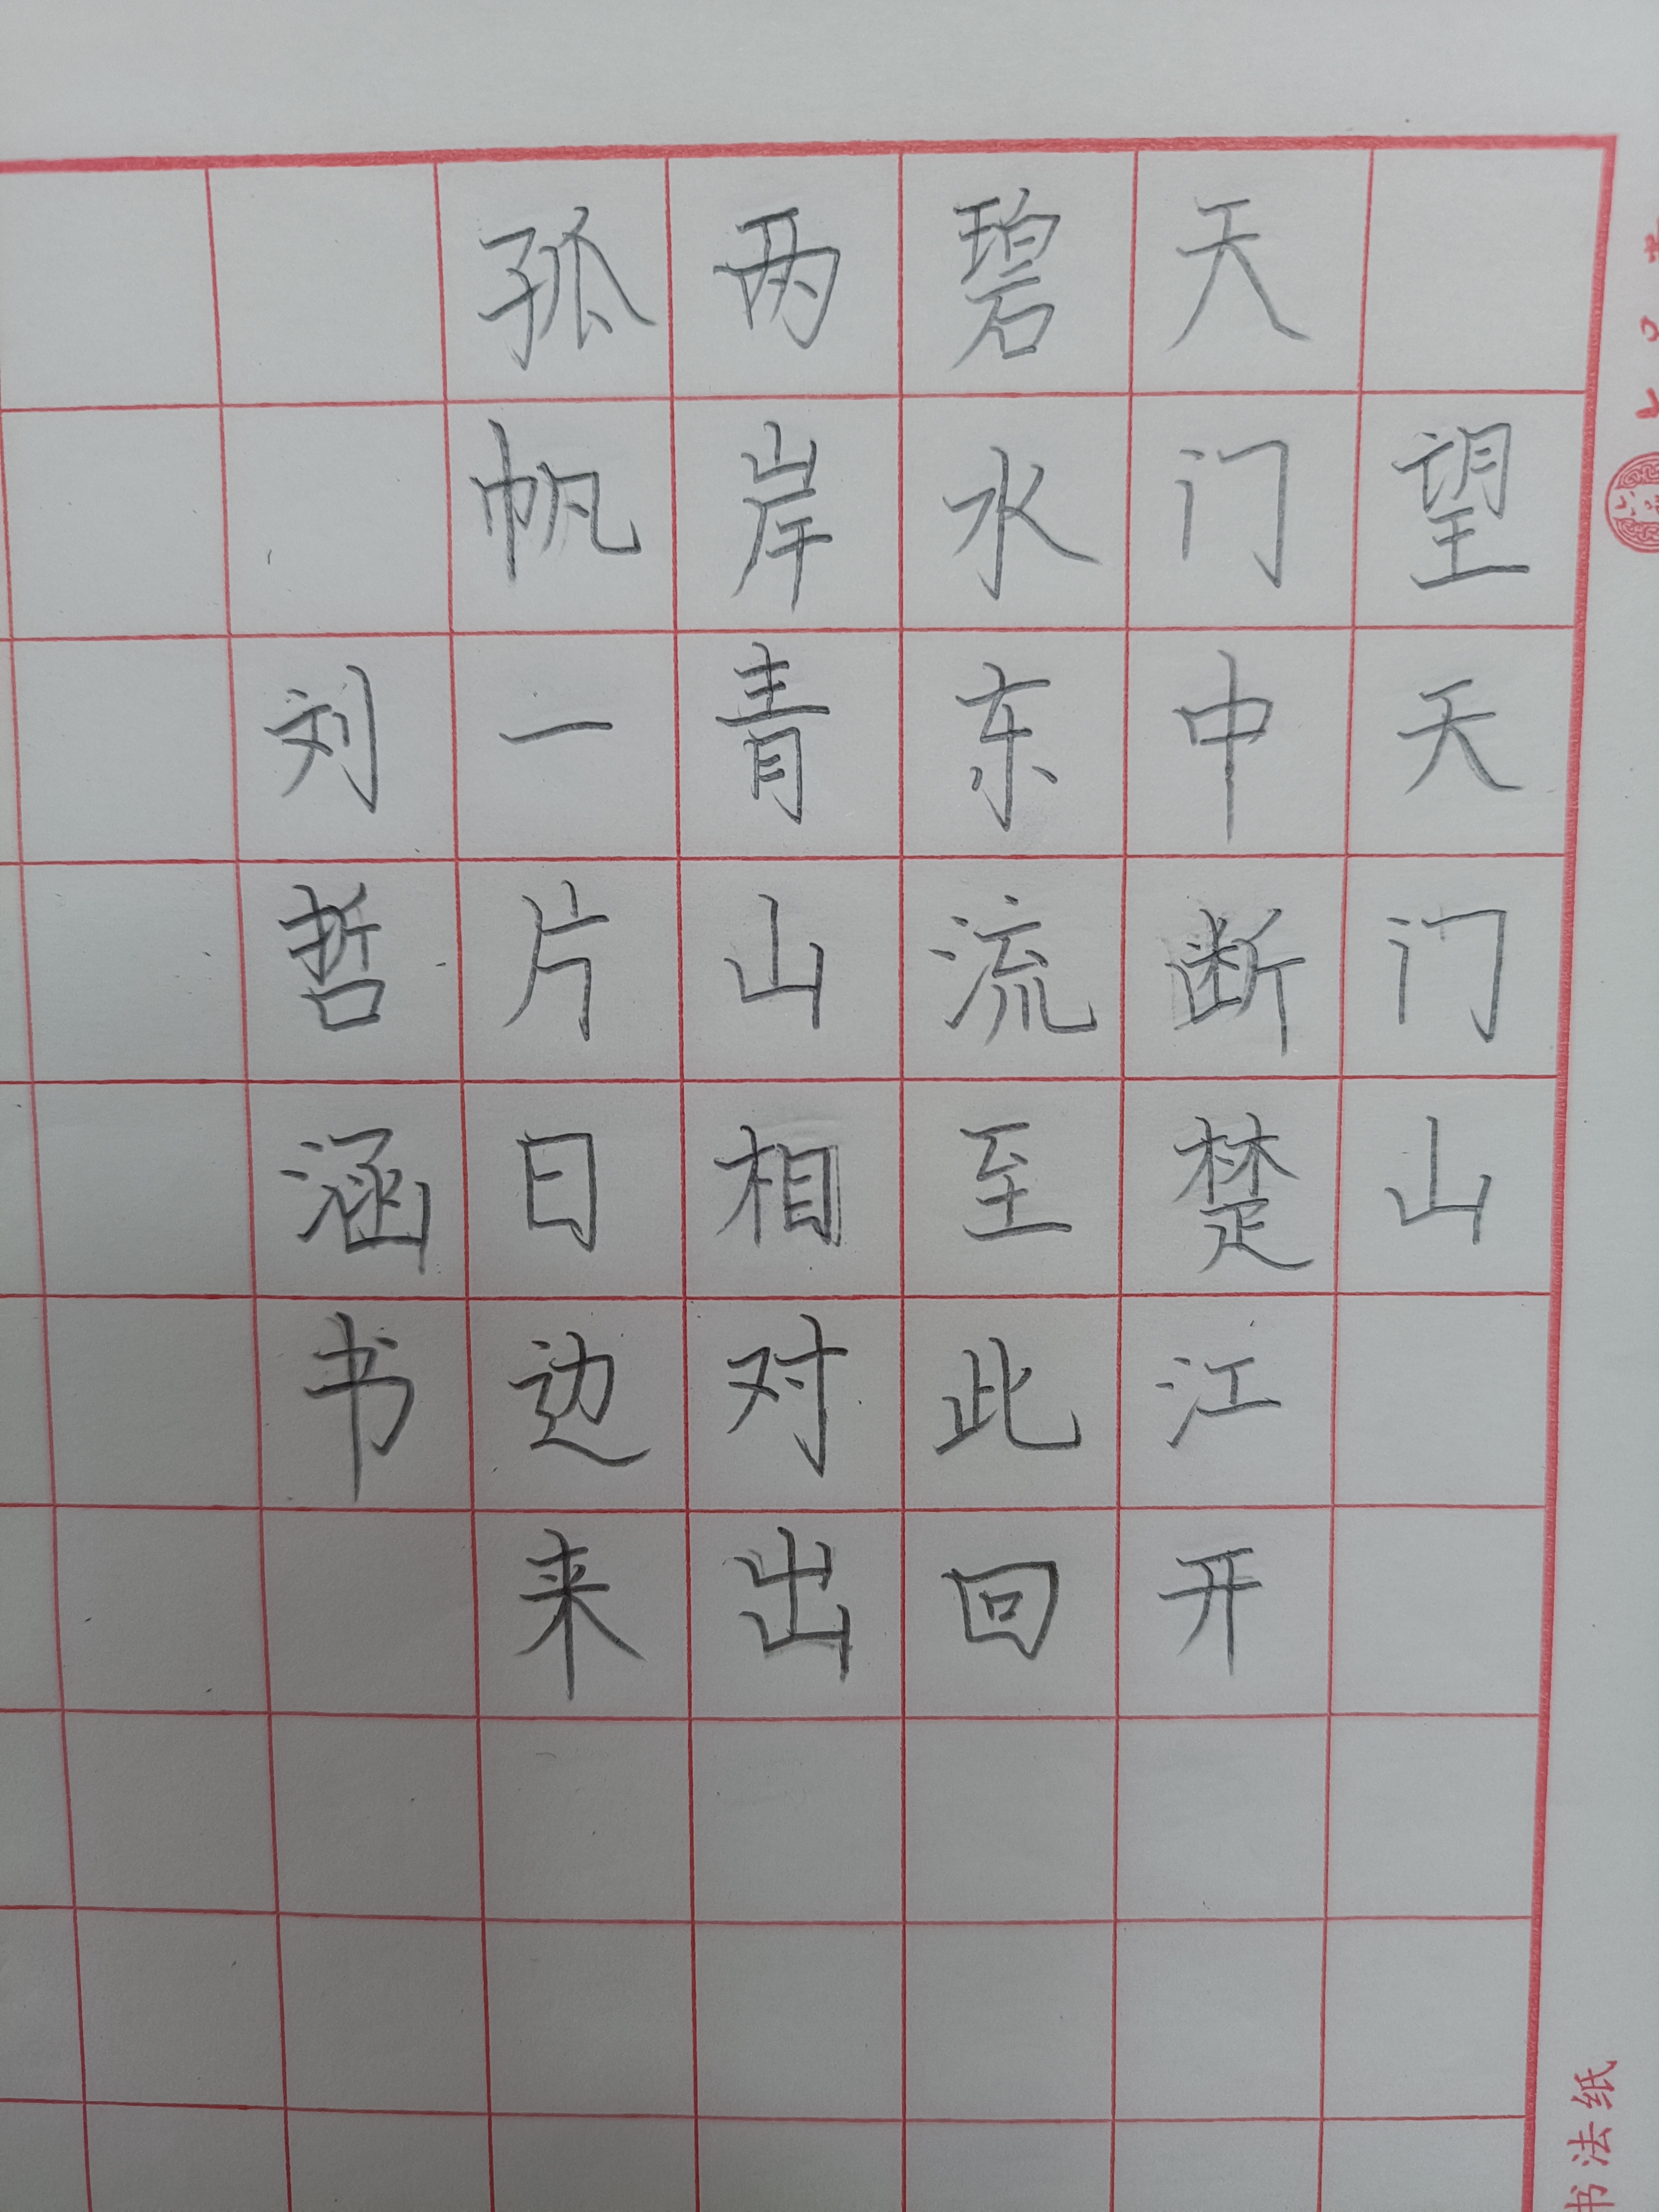 望天门山
天门中断楚江开
碧水东流至此回
两岸青山相对出
孤帆一片日边来
刘哲涵书
书法纸